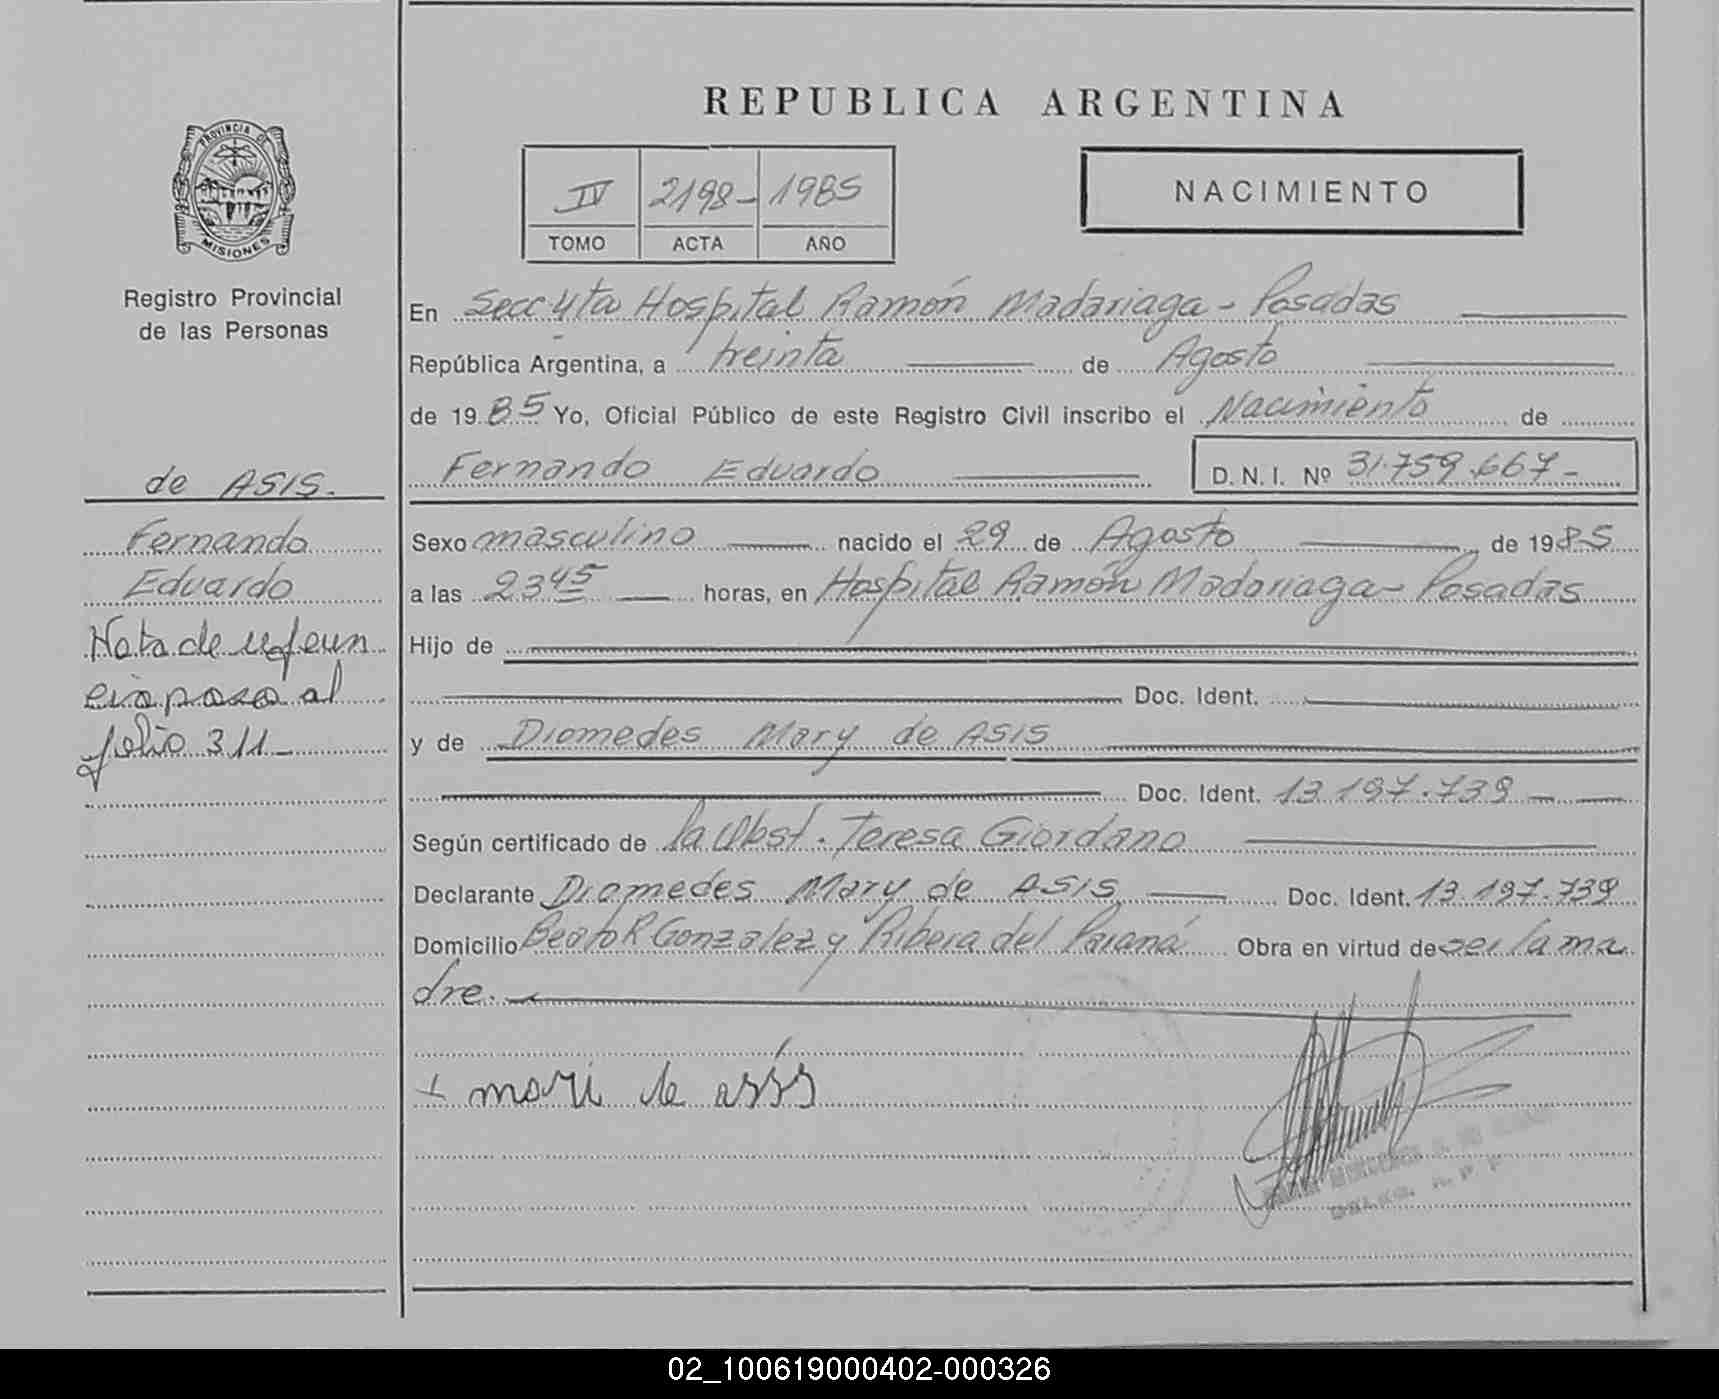 PROVINCIA DE
MISIONES
Registro Provincial
de las Personas
de ASIS.
Fernando
Eduardo
Nota de referen
cia pasa al
folio 311_
REPUBLICA ARGENTINA
IV 2198- 1985
TOMO ACTA AÑO
NACIMIENTO
En Secc 4ta Hospital Ramón Madariaga - Posadas
República Argentina, a treinta de Agosto
de 1985 Yo, Oficial Público de este Registro Civil inscribo el Nacimiento de
Fernando Eduardo D.N.I. Nº 31.759.667-
Sexo masculino nacido el 29 de Agosto de 1985
a las 23 45 horas, en Hospital Ramón Madariaga - Posadas
Hijo de
Doc. Ident.
y de Diomedes Mary de ASIS
Doc. Ident. 13.197.739
Según certificado de la Obst. Teresa Giordano
Declarante Diomedes Mary de ASIS Doc. Ident. 13.197.739
Domicilio Beato R Gonzalez y Ribera del Paraná Obra en virtud de ser la ma
dre.
+ mari de asis
02_100619000402-000326